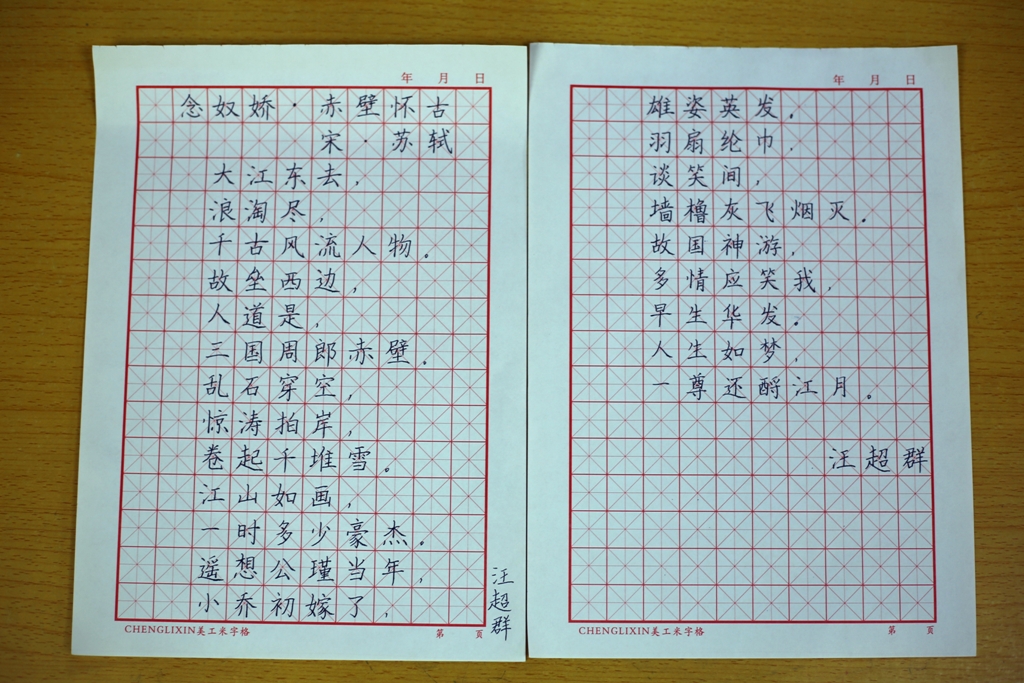 年 月 日
念奴娇·赤壁怀古
宋·苏轼
大江东去，
浪淘尽，
千古风流人物。
故垒西边，
人道是，
三国周郎赤壁。
乱石穿空，
惊涛拍岸，
卷起千堆雪。
江山如画，
一时多少豪杰。
遥想公瑾当年，
小乔初嫁了，
汪超群
CHENGLIXIN美工米字格
第 页
年 月 日
雄姿英发。
羽扇纶巾.
谈笑间，
墙橹灰飞烟灭。
故国神游，
多情应笑我，
早生华发。
人生如梦，
一尊还酹江月。
汪超群
CHENGLIXIN美工米字格
第 页